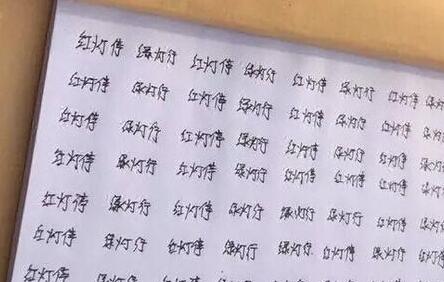 红灯停 绿灯行 红灯停 绿灯行 红灯停 绿灯行 红灯停
红灯停 绿灯行 红灯停 绿灯行 红灯停 绿灯行 红灯停
红灯停 绿灯行 红灯停 绿灯行 红灯停 绿灯行 红灯停
红灯停 绿灯行 红灯停 绿灯行 红灯停 红灯停
红灯停 绿灯行 红灯停 绿灯行 绿灯行 红灯停 绿灯行
红灯停 绿灯行 红灯停 绿灯行 绿灯行 红灯停 绿灯行
红灯停